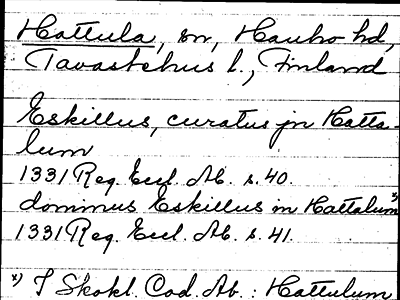 Hattula, sn, Hauho hd,
Tavastehus l., Finland
Eskillus, curatus jn Hatta-
lum
1331 Reg. Eccl. Ab. s. 40.
dominus Eskillus in Hattalum x)
1331 Reg. Eccl. Ab. s. 41.
x) I Skokl. Cod. Ab.: Hattulum